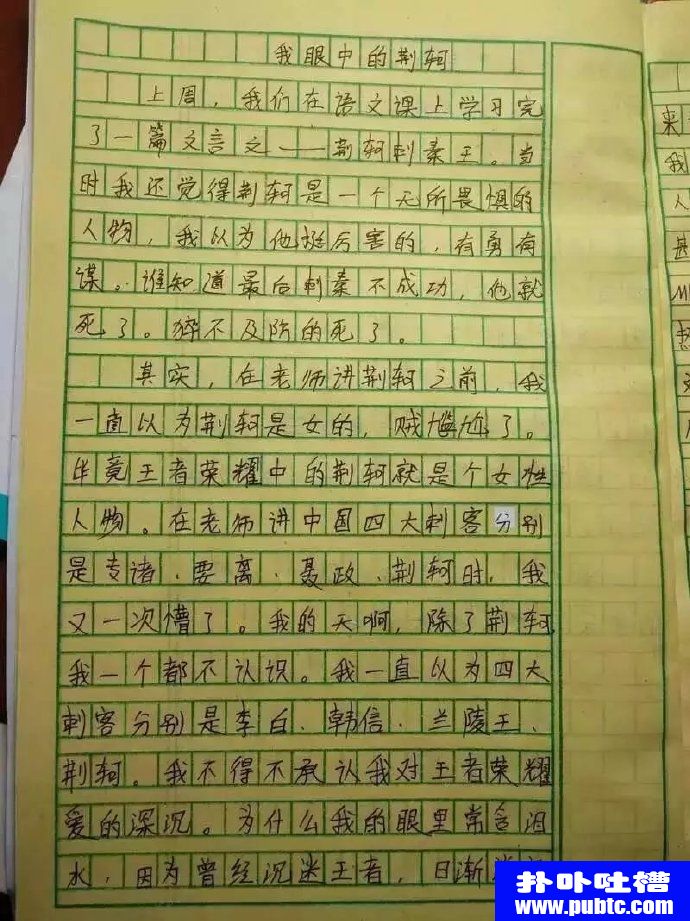 我眼中的荆轲
上周，我们在语文课上学习完
了一篇文言之——荆轲刺秦王。当
时我还觉得荆轲是一个无所畏惧的
人物，我以为他挺厉害的，有勇有
谋。谁知道最后刺秦不成功，他就
死了。猝不及防的死了。
其实，在老师讲荆轲之前，我
一直以为荆轲是女的，贼尴尬了。
毕竟王者荣耀中的荆轲就是个女性
人物。在老师讲中国四大刺客分别
是专诸、要离、聂政、荆轲时，我
又一次懵了。我的天啊，除了荆轲，
我一个都不认识。我一直以为四大
刺客分别是李白、韩信、兰陵王、
荆轲。我不得不承认我对王者荣耀
爱的深沉。为什么我的眼里常含泪
水，因为曾经沉迷王者，日渐
来
我
人
甚
扑卟吐槽
www.pubtc.com